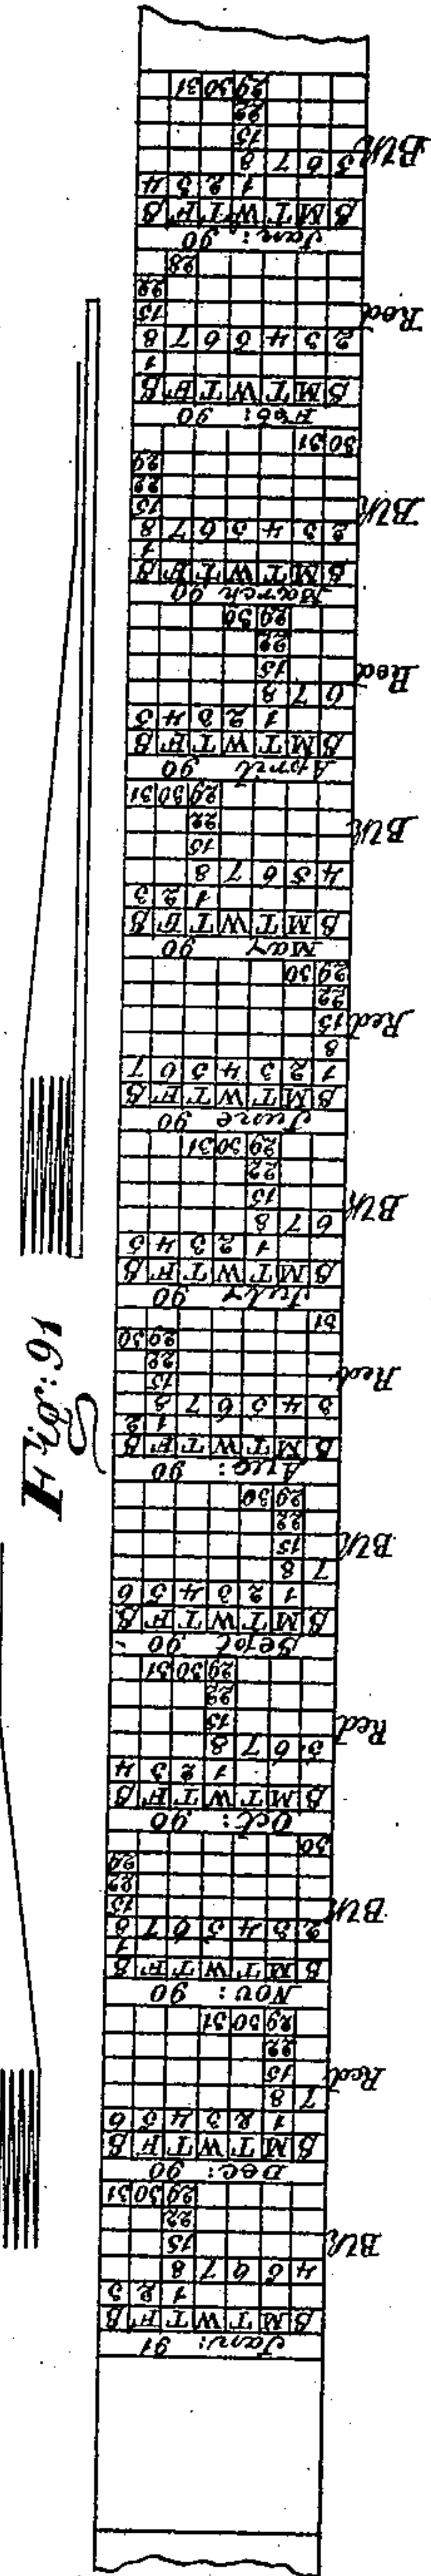 Fig: 91
Blk
Jan: 90
S M T W T F S
1 2 3 4
5 6 7 8
15
22
29 30 31
Red
Feb: 90
S M T W T F S
1
2 3 4 5 6 7 8
15
22
28
Blk
March 90
S M T W T F S
1
2 3 4 5 6 7 8
15
22
29
30 31
Red
April 90
S M T W T F S
1 2 3 4 5
6 7 8
15
22
29 30
Blk
May 90
S M T W T F S
1 2 3
4 5 6 7 8
15
22
29 30 31
Red
June 90
S M T W T F S
1 2 3 4 5 6 7
8
15
22
29 30
Blk
July 90
S M T W T F S
1 2 3 4 5
6 7 8
15
22
29 30 31
Red
Aug: 90
S M T W T F S
1 2
3 4 5 6 7 8
15
22
29 30
31
Blk
Sept 90
S M T W T F S
1 2 3 4 5 6
7 8
15
22
29 30
Red
Oct: 90
S M T W T F S
1 2 3 4
5 6 7 8
15
22
29 30 31
Blk
Nov: 90
S M T W T F S
1
2 3 4 5 6 7 8
15
22
29
30
Red
Dec: 90
S M T W T F S
1 2 3 4 5 6
7 8
15
22
29 30 31
Blk
Jan: 91
S M T W T F S
1 2 3
4 5 6 7 8
15
22
29 30 31